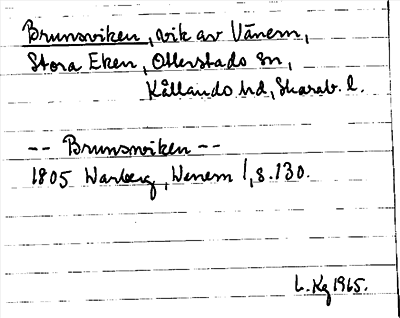 Brunsviken, vik av Vänern,
Stora Eken, Otterstads sn,
Kållands hd, Skarab. l.
-- Brunsviken --
1805 Warberg, Wenern 1, s. 130.
L. Kg 1965.